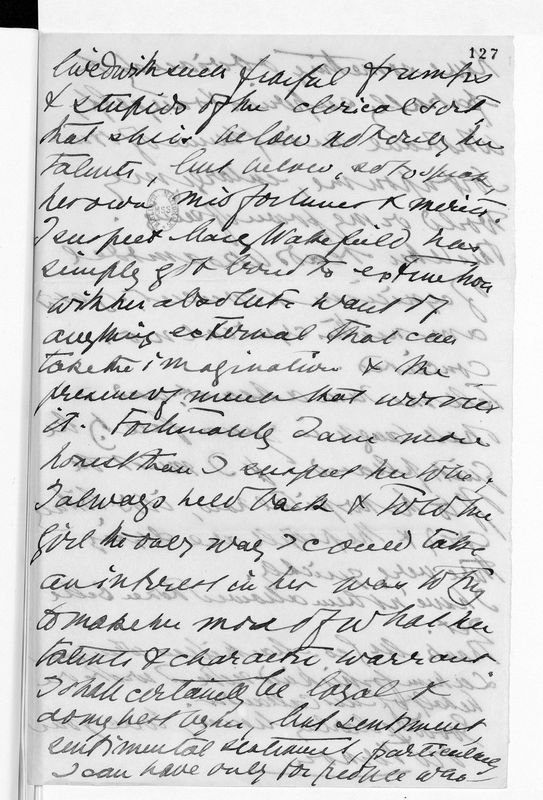 127
lived with such fearful frumps
& stupids of the clerical sort,
that she is below not only her
talents, but below, so to speak,
her own misfortunes & merits.
I suspect Mary Wakefield has
simply got bored to extinction
with her absolute want of
anything external that can
take the imagination & the
presence of much that worries
it. Fortunately I am more
honest than I suspect her to be.
I always held back & told the
girl the only way I could take
an interest in her was to try
to make the most of what her
talents & character warrant
I shall certainly be loyal &
do my best by her, but sentiment
sentimental sentiment, particularly
I can have only for people who